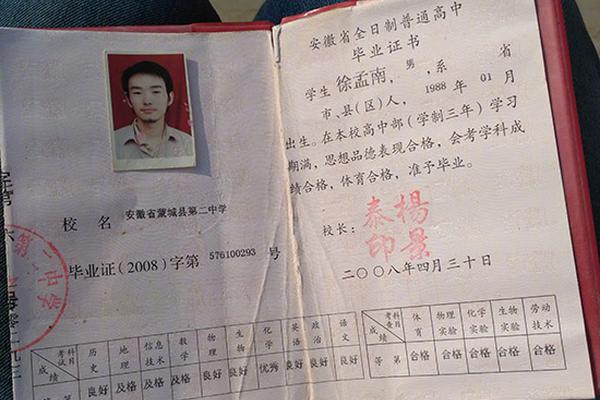 校名 安徽省蒙城县第二中学
毕业证(2008)字第 576100293 号
第二中学
考试科目 历史 地理 信息技术 数学 物理 生物 化学 英语 政治 语文
成绩 良好 及格 及格 及格 良好 良好 优秀 良好 良好 良好
安徽省全日制普通高中
毕业证书
学生 徐孟南，男，系 省
市、县(区)人，1988 年 01 月
出生。在本校高中部(学制三年)学习
期满，思想品德表现合格，会考学科成
绩合格，体育合格，准予毕业。
校长： 楊景泰印
二〇〇八年四月三十日
考查科目 体育 物理实验 化学实验 生物实验 劳动技术
成绩 等第 合格 合格 合格 合格 合格